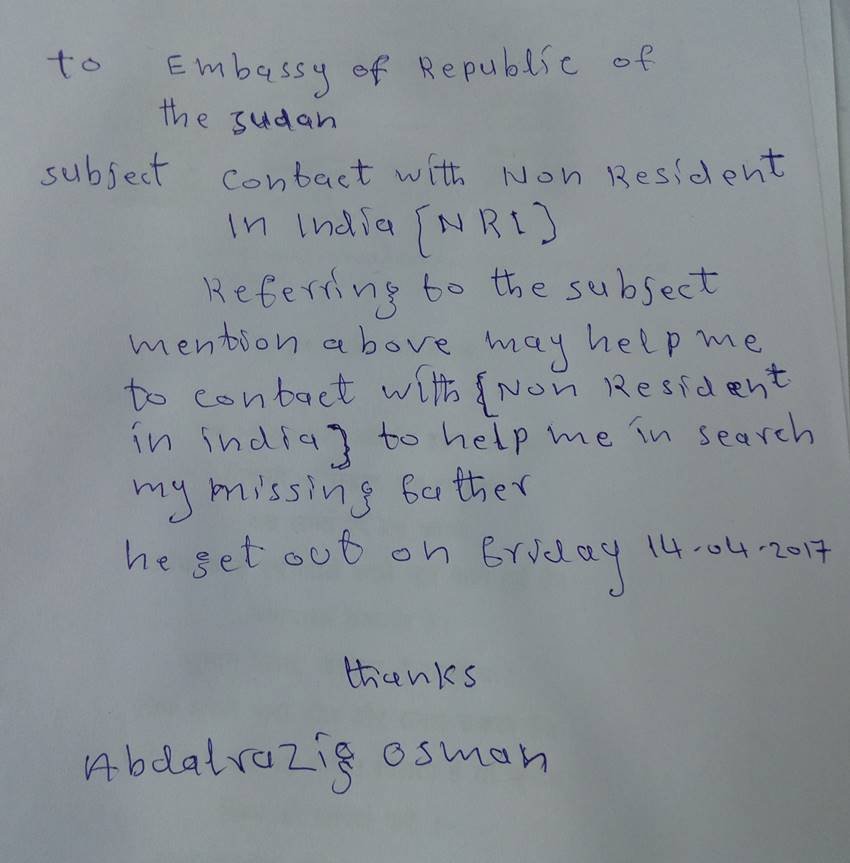 to Embassy of Republic of
the sudan
subject contact with Non Resident
In India [NRI]
Referring to the subject
mention above may help me
to contact with {Non Resident
in india} to help me in search
my missing father
he get out on friday 14-04-2017
thanks
Abdalrazig osman